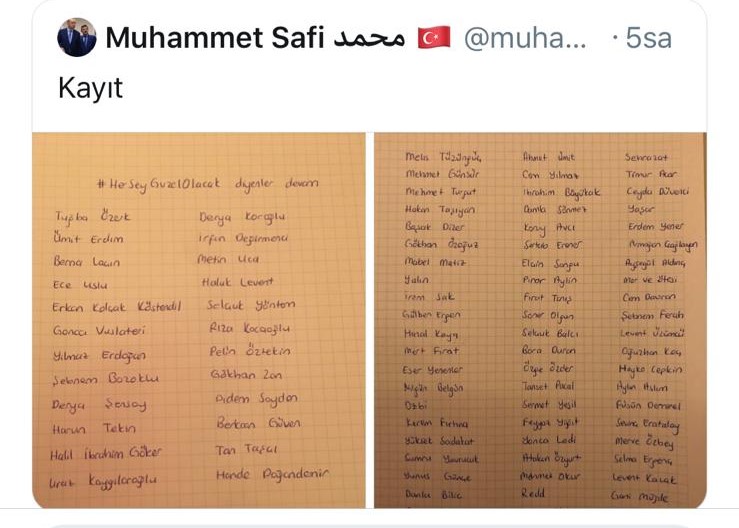 Muhammet Safi محمد 🇹🇷 @muha... · 5sa
Kayıt
#HerSeyGuzelOlacak diyenler devam
Tuğba Özerk
Ümit Erdim
Berna Laçin
Ece Uslu
Erkan Kolçak Köstendil
Gonca Vuslateri
Yılmaz Erdoğan
Şebnem Bozoklu
Derya Şensoy
Harun Tekin
Halil İbrahim Göker
Uraz Kaygılaroğlu
Derya Köroğlu
İrfan Değirmenci
Metin Uca
Haluk Levent
Selçuk Yöntem
Rıza Kocaoğlu
Pelin Öztekin
Gökhan Zan
Didem Soydan
Berkcan Güven
Tan Taşçı
Hande Doğandemir
Melis Tüzüngüç
Mehmet Günsür
Mehmet Turgut
Hakan Taşıyan
Başak Dizer
Gökhan Özoğuz
Mabel Matiz
Yalın
İrem Sak
Gülben Ergen
Hazal Kaya
Mert Fırat
Eser Yenenler
Belgün
Özbi
Kerim
Yüksek Sadakat
Cemre
Yunus Günce
Danla Bilic
Ahmet Ümit
Cem Yılmaz
İbrahim Büyükak
Damla Sönmez
Koray Avcı
Sertab Erener
Elçin Sangu
Pınar Aylin
Fırat Tanış
Soner Olgun
Selçuk Balcı
Bora Duran
Özge Özder
Tansel
Sermet Yeşil
Feyyaz Yiğit
Yonca Lodi
Atakan Özyurt
Mehmet Okur
Redd
Şehrazat
Timur Acar
Ceyda Düvenci
Yaşar
Erdem Yener
Armağan Çağlayan
Ayşegül Aldinç
Mor ve Ötesi
Can Bonomo
Şebnem Ferah
Levent Üzümcü
Oğuzhan Koç
Hayko Cepkin
Aylin Aslım
Füsun Demirel
Sevinç Erbulak
Merve Özbey
Selma Ergeç
Levent Kazak
Gani Müjde